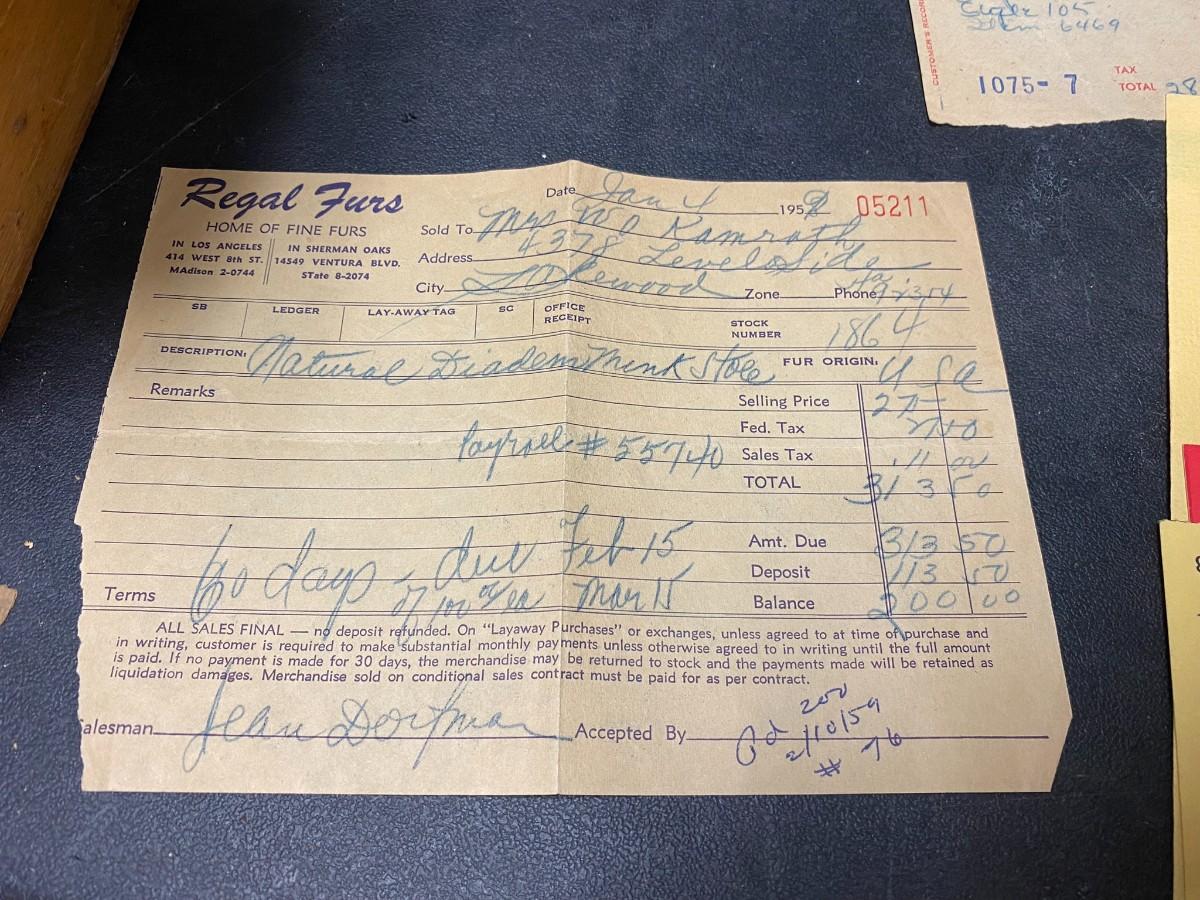 CUSTOMER'S RECORD
105
6469
1075- 7
TAX
TOTAL 28
Regal Furs
HOME OF FINE FURS
IN LOS ANGELES
414 WEST 8th ST.
MAdison 2-0744
IN SHERMAN OAKS
14549 VENTURA BLVD.
STate 8-2074
Date Jan 4 195 05211
Sold To Mrs W O Kamrath
Address 4378 Levelside
City Lakewood Zone Phone
SB LEDGER LAY-AWAY TAG SC OFFICE RECEIPT STOCK NUMBER 1864
DESCRIPTION: Natural Diadem Mink Stole FUR ORIGIN: U S a
Remarks
Selling Price 275
Fed. Tax 27 50
Payroll # 55740 Sales Tax 11 00
TOTAL 313 50
60 days - due Feb 15 Amt. Due 313 50
Deposit 113 50
Terms of 100 00/ea Mar 15 Balance 200 00
ALL SALES FINAL — no deposit refunded. On "Layaway Purchases" or exchanges, unless agreed to at time of purchase and
in writing, customer is required to make substantial monthly payments unless otherwise agreed to in writing until the full amount
is paid. If no payment is made for 30 days, the merchandise may be returned to stock and the payments made will be retained as
liquidation damages. Merchandise sold on conditional sales contract must be paid for as per contract.
alesman Jean Dorfman Accepted By
Pd 200
2/10/59
# 76